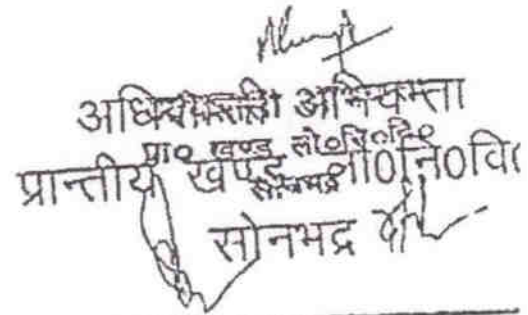 अधिशासी अभियन्ता
प्रा० खण्ड लो०नि०वि०
प्रान्तीय खण्ड लो०नि०वि०
सोनभद्र
सोनभद्र